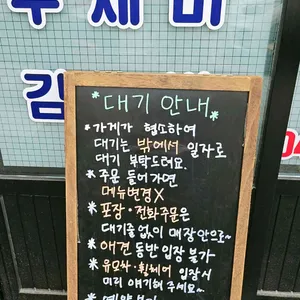 수제비
김
04
*대기 안내*
*가게가 협소하여
대기는 밖에서 일자로
대기 부탁드려요.
*주문 들어가면
메뉴변경X
*포장·전화주문은
대기줄 없이 매장안으로~
*애견 동반 입장 불가
*유모차·휠체어 입장시
미리 얘기해 주세요~